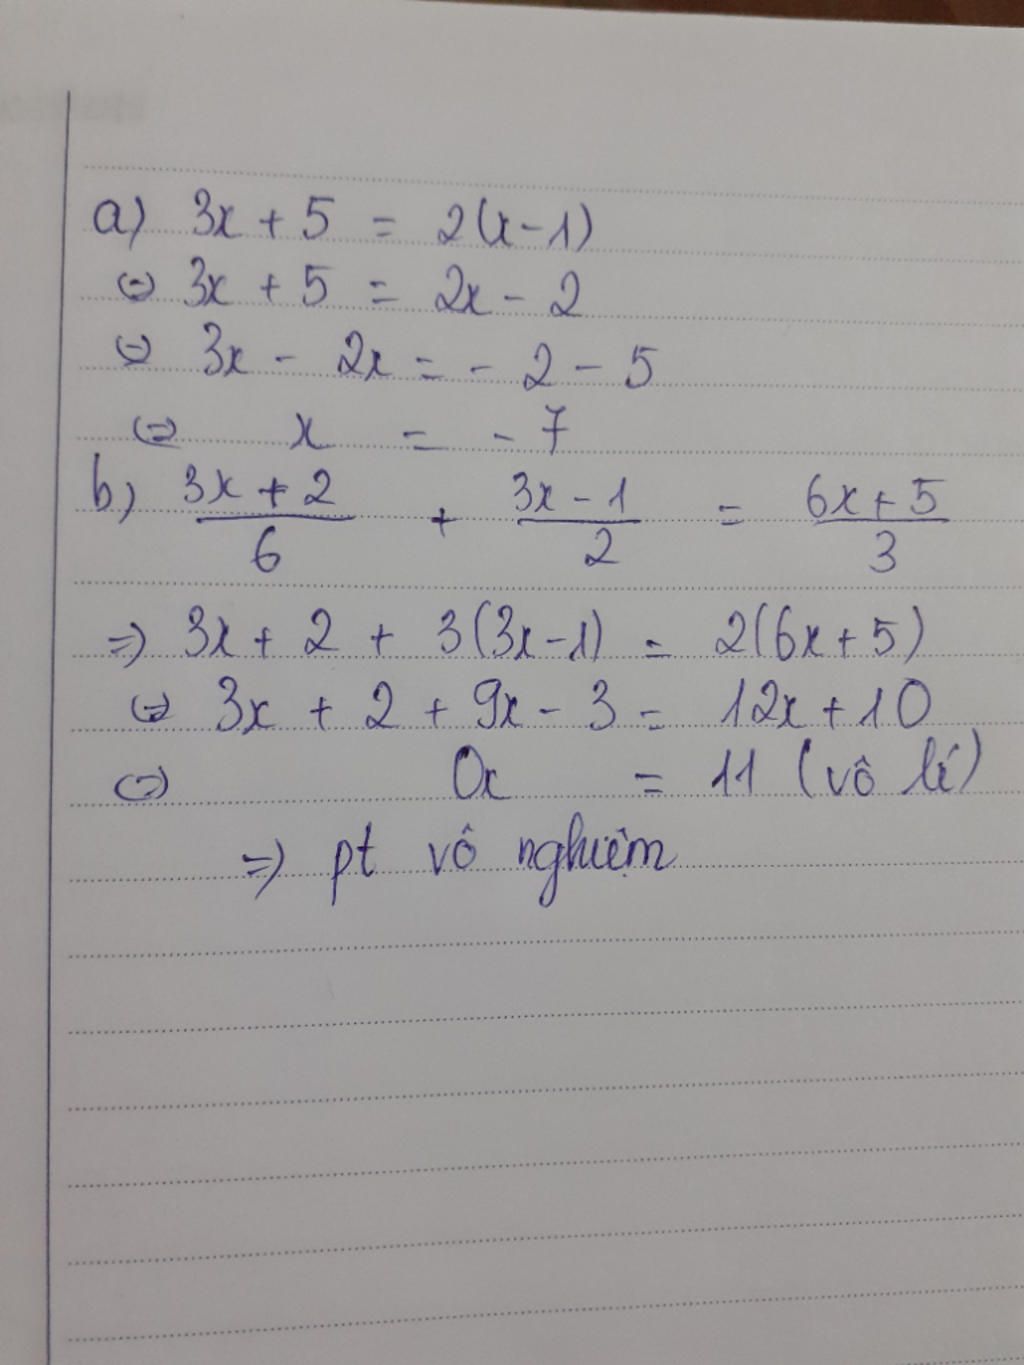 a) 3x + 5 = 2(x - 1)
⇔ 3x + 5 = 2x - 2
⇔ 3x - 2x = - 2 - 5
⇔ x = - 7
b) \frac{3x + 2}{6} + \frac{3x - 1}{2} = \frac{6x + 5}{3}
⇒ 3x + 2 + 3(3x - 1) = 2(6x + 5)
⇔ 3x + 2 + 9x - 3 = 12x + 10
⇔ 0x = 11 (vô lí)
⇒ pt vô nghiệm